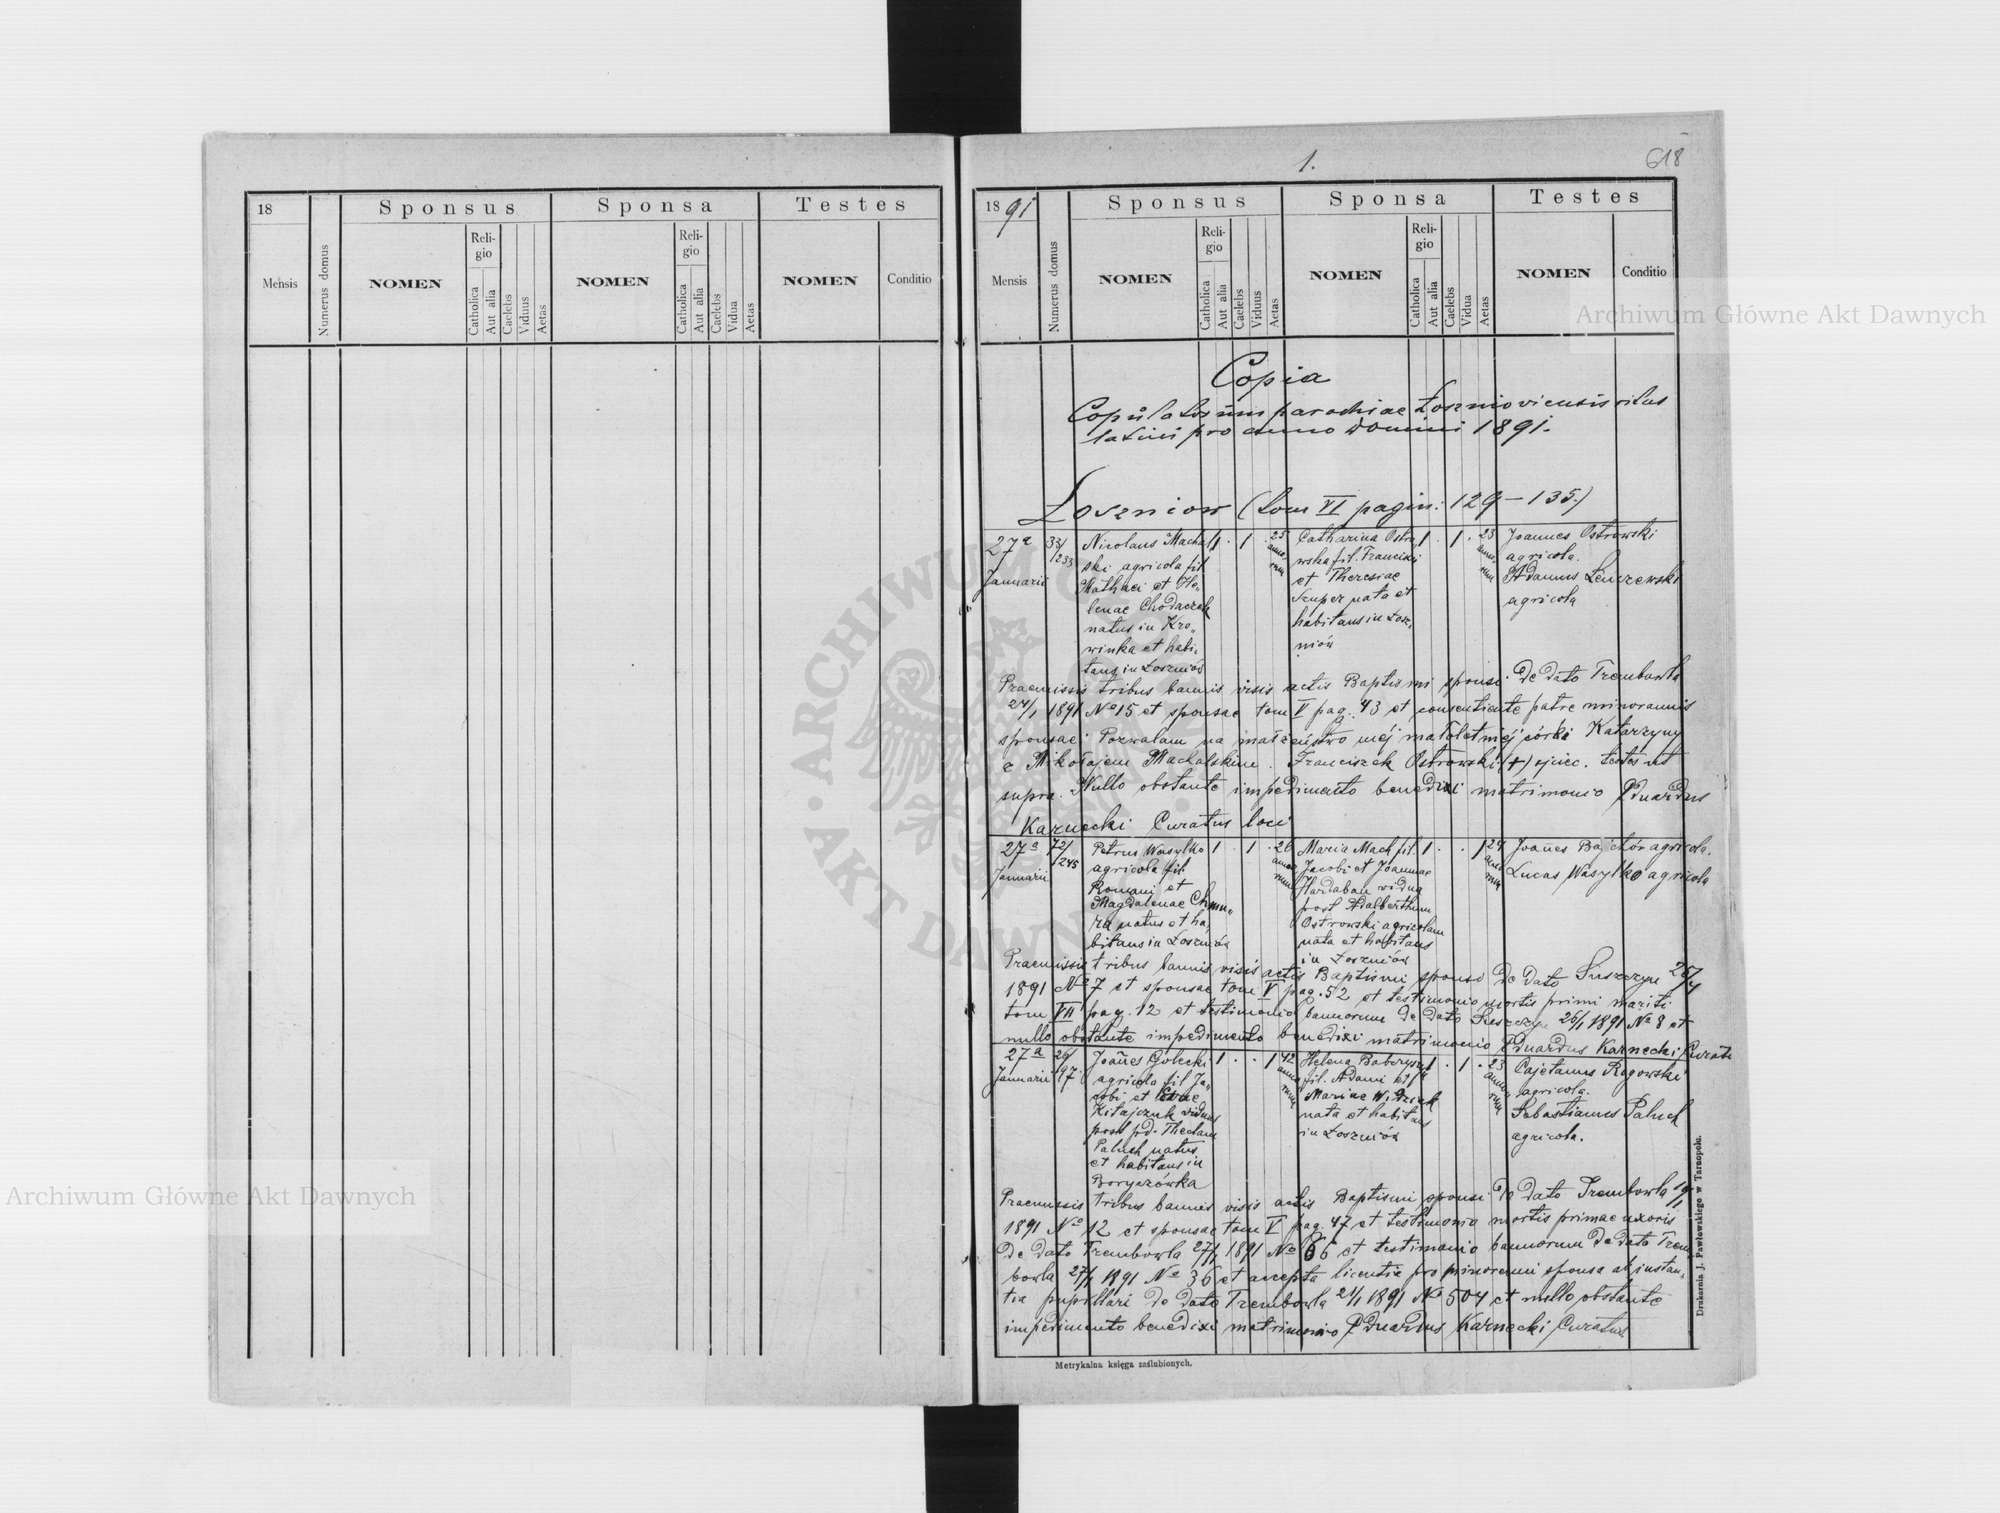 18
Sponsus
Sponsa
Testes
Mensis
Numerus domus
NOMEN
Religio
Catholica
Aut alia
Caelebs
Viduus
Aetas
NOMEN
Religio
Catholica
Aut alia
Caelebs
Vidua
Aetas
NOMEN
Conditio
1.
618
1891
Sponsus
Sponsa
Testes
Mensis
Numerus domus
NOMEN
Religio
Catholica
Aut alia
Caelebs
Viduus
Aetas
NOMEN
Religio
Catholica
Aut alia
Caelebs
Vidua
Aetas
NOMEN
Conditio
Copia
Copulatorum parochiae Łosznioviensis ritus
latini pro anno Domini 1891.
Łoszniow (tom VI pagin: 129-135.)
27a
Januarii
33/233
Nicolaus Machal
ski agricola fil
Mathaei et He„
lenae Chodaczek
natus in Kro„
winka et habi„
tans in Łoszniów
1 . 1 . 25
annorum
Catharina Ostro„
wska fil. Francisci
et Theresiae
Szuper nata et
habitans in Łosz„
niów
1 . 1 . 23
annorum
Joannes Ostrowski
agricola.
Adamus Lenczewski
agricola
Praemissis tribus bannis visis actis Baptismi sponsi De Dato Trembowla
24/1 1891 No 15 et sponsae tom V pag. 43 et consentiente patre minorennis
sponsae: Pozwalam na małżeństwo méj małoletniéj córki Katarzyny
z Mikołajem Machalskim. Franciszek Ostrowski (+) ojciec. testes ut
supra. Nullo obstante impedimento benedixi matrimonio Eduardus
Karnecki Curatus loci
27a
Januarii
72/245
Petrus Wasylko
agricola fil
Romani et
Magdalenae Chmu„
ra natus et ha„
bitans in Łoszniów
1 . 1 . 26
annorum
Maria Mach fil.
Jacobi et Joannae
Hardaban vidua
post Adalbertum
Ostrowski agricolam
nata et habitans
in Łoszniów
1 . . 1 24
annorum
Joañes Bajchór agricola.
Lucas Wasylko agricola
Praemissis tribus bannis visis actis Baptismi sponsi De Dato Suszczyn
1891 No 7 et sponsae tom V pag. 52 et testimonio mortis primi mariti
tom VII pag. 12 et testimonio bannorum De Dato Suszczyn 26/1 1891 No 8 et
nullo obstante impedimento benedixi matrimonio Eduardus Karnecki Curatus
27a
Januarii
26/97
Joañes Gołecki
agricola fil Ja„
cobi et Evae
Kitajczuk viduus
post pd. Theclam
Paluch natus
et habitans in
Boryczówka
1 . . 1 42
annorum
Helena Babczyszyn
fil. Adami et
Mariae
nata et habitans
in Łoszniów
1 . 1 . 23
annorum
Cajetanus Rogowski
agricola.
Sebastianus Paluch
agricola.
Praemissis tribus bannis visis actis Baptismi sponsi De Dato Trembowla 19/1
1891 No 12 et sponsae tom V pag. 47 et testimonio mortis primae uxoris
De Dato Trembowla 27/1 1891 No 66 et testimonio bannorum De Dato Trem„
bowla 27/1 1891 No 36 et accepta licentia pro minorenni sponsa ab instan„
tia pupillari De Dato Trembowla 21/1 1891 No 504 et nullo obstante
impedimento benedixi matrimonio Eduardus Karnecki Curatus
Metrykalna księga zaślubionych.
Drukarnia J. Pawłowskiego w Tarnopolu.
Archiwum Główne Akt Dawnych
Archiwum Główne Akt Dawnych
ARCHIWUM GŁÓWNE AKT DAWNYCH